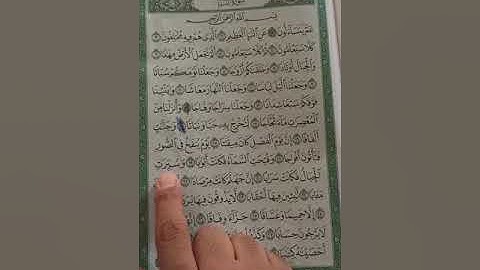 بِسْمِ اللَّهِ الرَّحْمَٰنِ الرَّحِيمِ
عَمَّ يَتَسَاءَلُونَ ۝ عَنِ النَّبَإِ الْعَظِيمِ ۝ الَّذِي هُمْ فِيهِ مُخْتَلِفُونَ ۝
كَلَّا سَيَعْلَمُونَ ۝ ثُمَّ كَلَّا سَيَعْلَمُونَ ۝ أَلَمْ نَجْعَلِ الْأَرْضَ مِهَٰدًا ۝
وَالْجِبَالَ أَوْتَادًا ۝ وَخَلَقْنَٰكُمْ أَزْوَٰجًا ۝ وَجَعَلْنَا نَوْمَكُمْ سُبَاتًا
۝ وَجَعَلْنَا الَّيْلَ لِبَاسًا ۝ وَجَعَلْنَا النَّهَارَ مَعَاشًا ۝ وَبَنَيْنَا
فَوْقَكُمْ سَبْعًا شِدَادًا ۝ وَجَعَلْنَا سِرَاجًا وَهَّاجًا ۝ وَأَنزَلْنَا مِنَ
الْمُعْصِرَٰتِ مَاءً ثَجَّاجًا ۝ لِّنُخْرِجَ بِهِ حَبًّا وَنَبَاتًا ۝ وَجَنَّٰتٍ
أَلْفَافًا ۝ إِنَّ يَوْمَ الْفَصْلِ كَانَ مِيقَٰتًا ۝ يَوْمَ يُنفَخُ فِي الصُّورِ
فَتَأْتُونَ أَفْوَاجًا ۝ وَفُتِحَتِ السَّمَاءُ فَكَانَتْ أَبْوَٰبًا ۝ وَسُيِّرَتِ
الْجِبَالُ فَكَانَتْ سَرَابًا ۝ إِنَّ جَهَنَّمَ كَانَتْ مِرْصَادًا ۝
مَـَٔابًا ۝ لَّٰبِثِينَ فِيهَا أَحْقَابًا ۝ لَّا يَذُوقُونَ فِيهَا بَرْدًا
۝ إِلَّا حَمِيمًا وَغَسَّاقًا ۝ جَزَاءً وِفَاقًا ۝
لَا يَرْجُونَ حِسَابًا ۝ وَكَذَّبُوا
أَحْصَيْنَٰهُ كِتَٰبًا